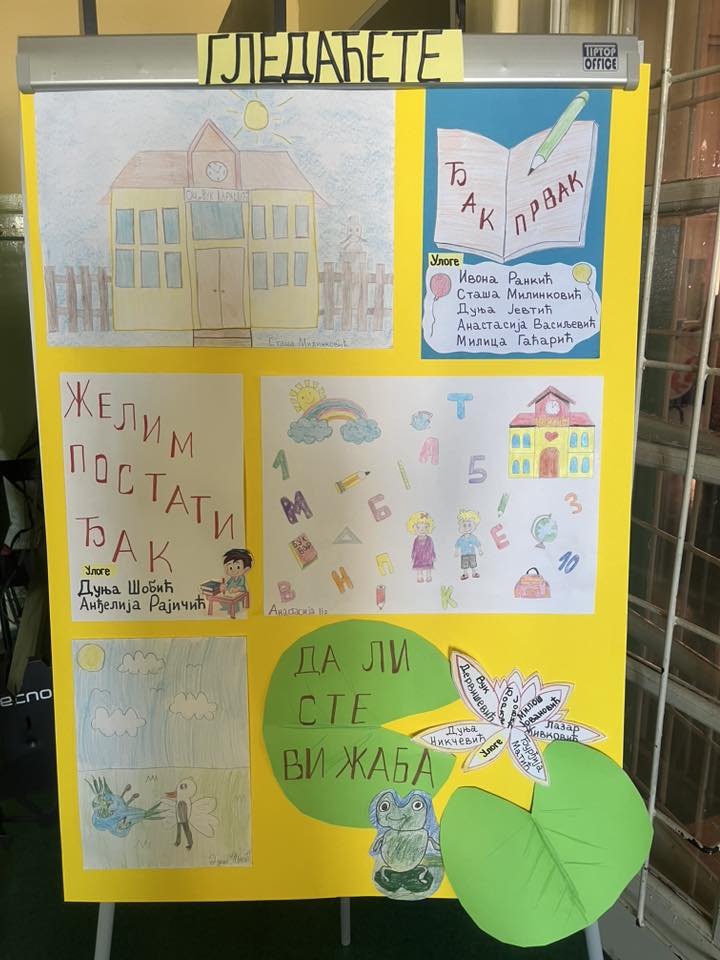 ГЛЕДАЋЕТЕ
TIPTOP
OFFICE
Сташа Милинковић
ЂАК
ПРВАК
Улоге
Ивона Ранкић
Сташа Милинковић
Дуња Јевтић
Анастасија Васиљевић
Милица Гаћарић
ЖЕЛИМ
ПОСТАТИ
ЂАК
Улоге
Дуња Шобић
Анђелија Рајичић
Т
Л
1
5
М
Б
Е
3
В
Н
П
К
10
Анастасија II2
ДА ЛИ
СТЕ
ВИ ЖАБА
Вук
Дервишевић
Ђорђе
Милош
Јовановић
Лазар
Живковић
Ђурђија
Матић
Улоге
Дуња
Никчевић